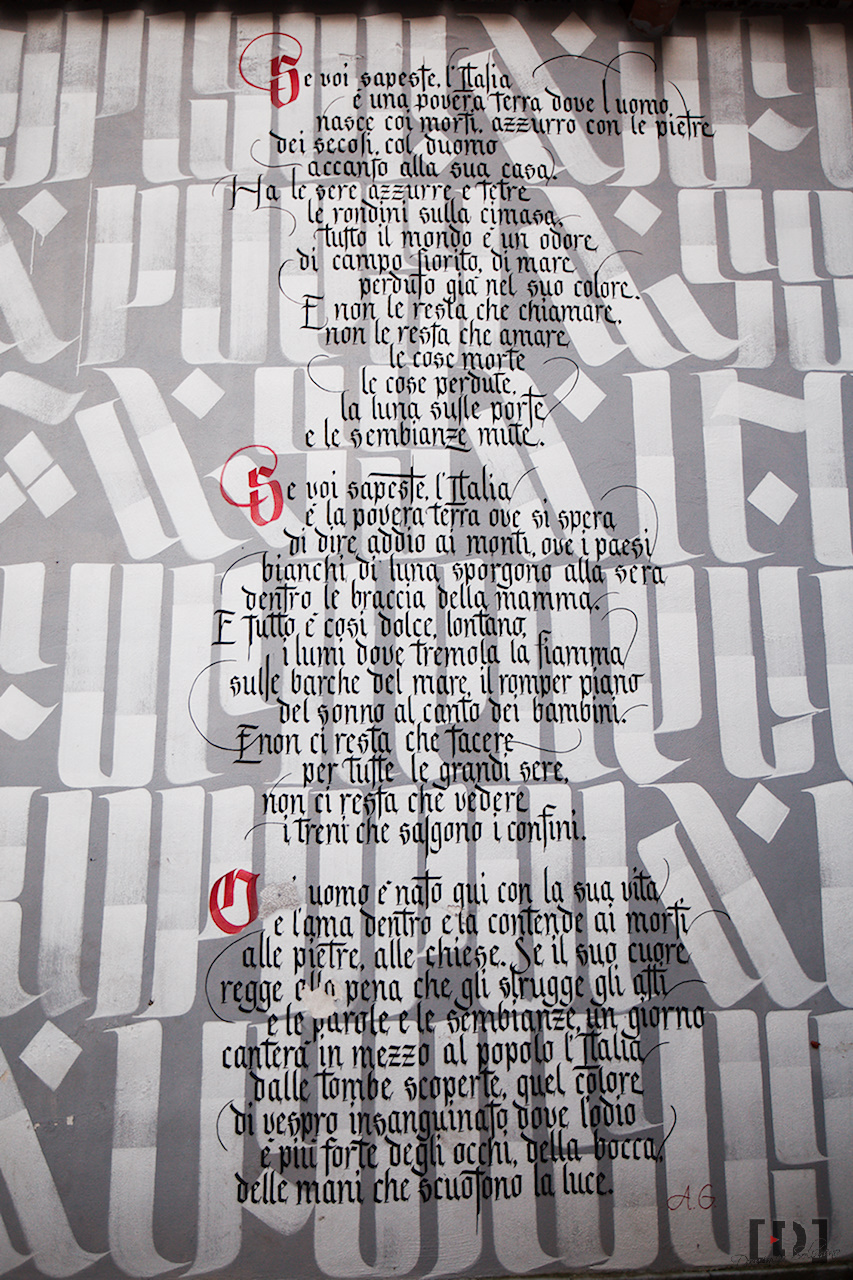 Se voi sapeste, l'Italia
è una povera terra dove l'uomo
nasce coi morti, azzurro con le pietre
dei secoli, col duomo
accanto alla sua casa.
Ha le sere azzurre e tetre
le rondini sulla cimasa,
tutto il mondo è un odore
di campo fiorito, di mare
perduto già nel suo colore.
E non le resta che chiamare,
non le resta che amare
le cose morte
le cose perdute,
la luna sulle porte
e le sembianze mute.
Se voi sapeste, l'Italia
è la povera terra ove si spera
di dire addio ai monti, ove i paesi
bianchi di luna sporgono alla sera
dentro le braccia della mamma.
E tutto è così dolce, lontano,
i lumi dove tremola la fiamma
sulle barche del mare, il romper piano
del sonno al canto dei bambini.
E non ci resta che tacere
per tutte le grandi sere,
non ci resta che vedere
i treni che salgono i confini.
O uomo è nato qui con la sua vita,
e l'ama dentro e la contende ai morti
alle pietre, alle chiese. Se il suo cuore
regge alla pena che gli strugge gli atti
e le parole e le sembianze, un giorno
canterà in mezzo al popolo l'Italia
dalle tombe scoperte, quel colore
di vespro insanguinato dove l'odio
è più forte degli occhi, della bocca,
delle mani che scuotono la luce.
A.G.
[D]